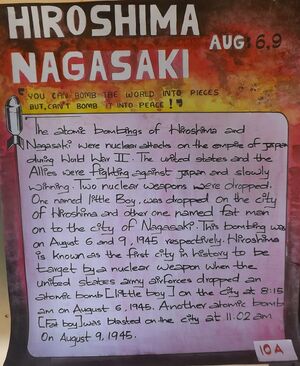 HIROSHIMA
NAGASAKI
AUG: 6,9
"YOU CAN BOMB THE WORLD INTO PIECES
BUT, CAN'T BOMB IT INTO PEACE!"
The atomic bombings of Hiroshima and
Nagasaki were nuclear attacks on the empire of japan
during World War II. The united states and the
Allies were fighting against japan and slowly
winning. Two nuclear weapons were dropped.
One named little Boy, was dropped on the city
of Hiroshima and other one named fat man
on to the city of Nagasaki. This bombing was
on August 6 and 9, 1945 respectively. Hiroshima
is known as the first city in history to be
target by a nuclear weapon when the
united states army airforces dropped an
atomic bomb [little boy] on the city at 8:15
am on August 6, 1945. Another atomic bomb
[Fat boy] was blasted on the city at 11:02 am
On August 9, 1945.
10 A